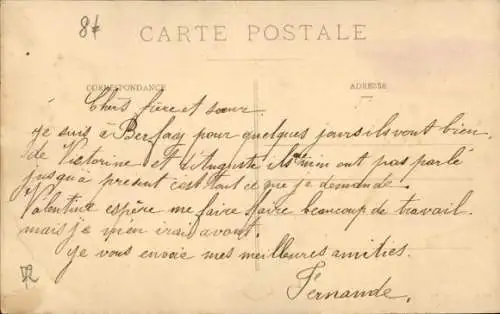 8f
CARTE POSTALE
CORRESPONDANCE
ADRESSE
Chers frère et sœur
je suis à Berfay pour quelques jours ils vont bien.
de Victorine et d'Auguste ils m'en ont pas parlé
jusqu'à present c'est tout ce que je demande.
Valentine espère me faire faire beaucoup de travail.
mais je m'en irai avant.
je vous envoie mes meilleures amities.
Fernande.
72